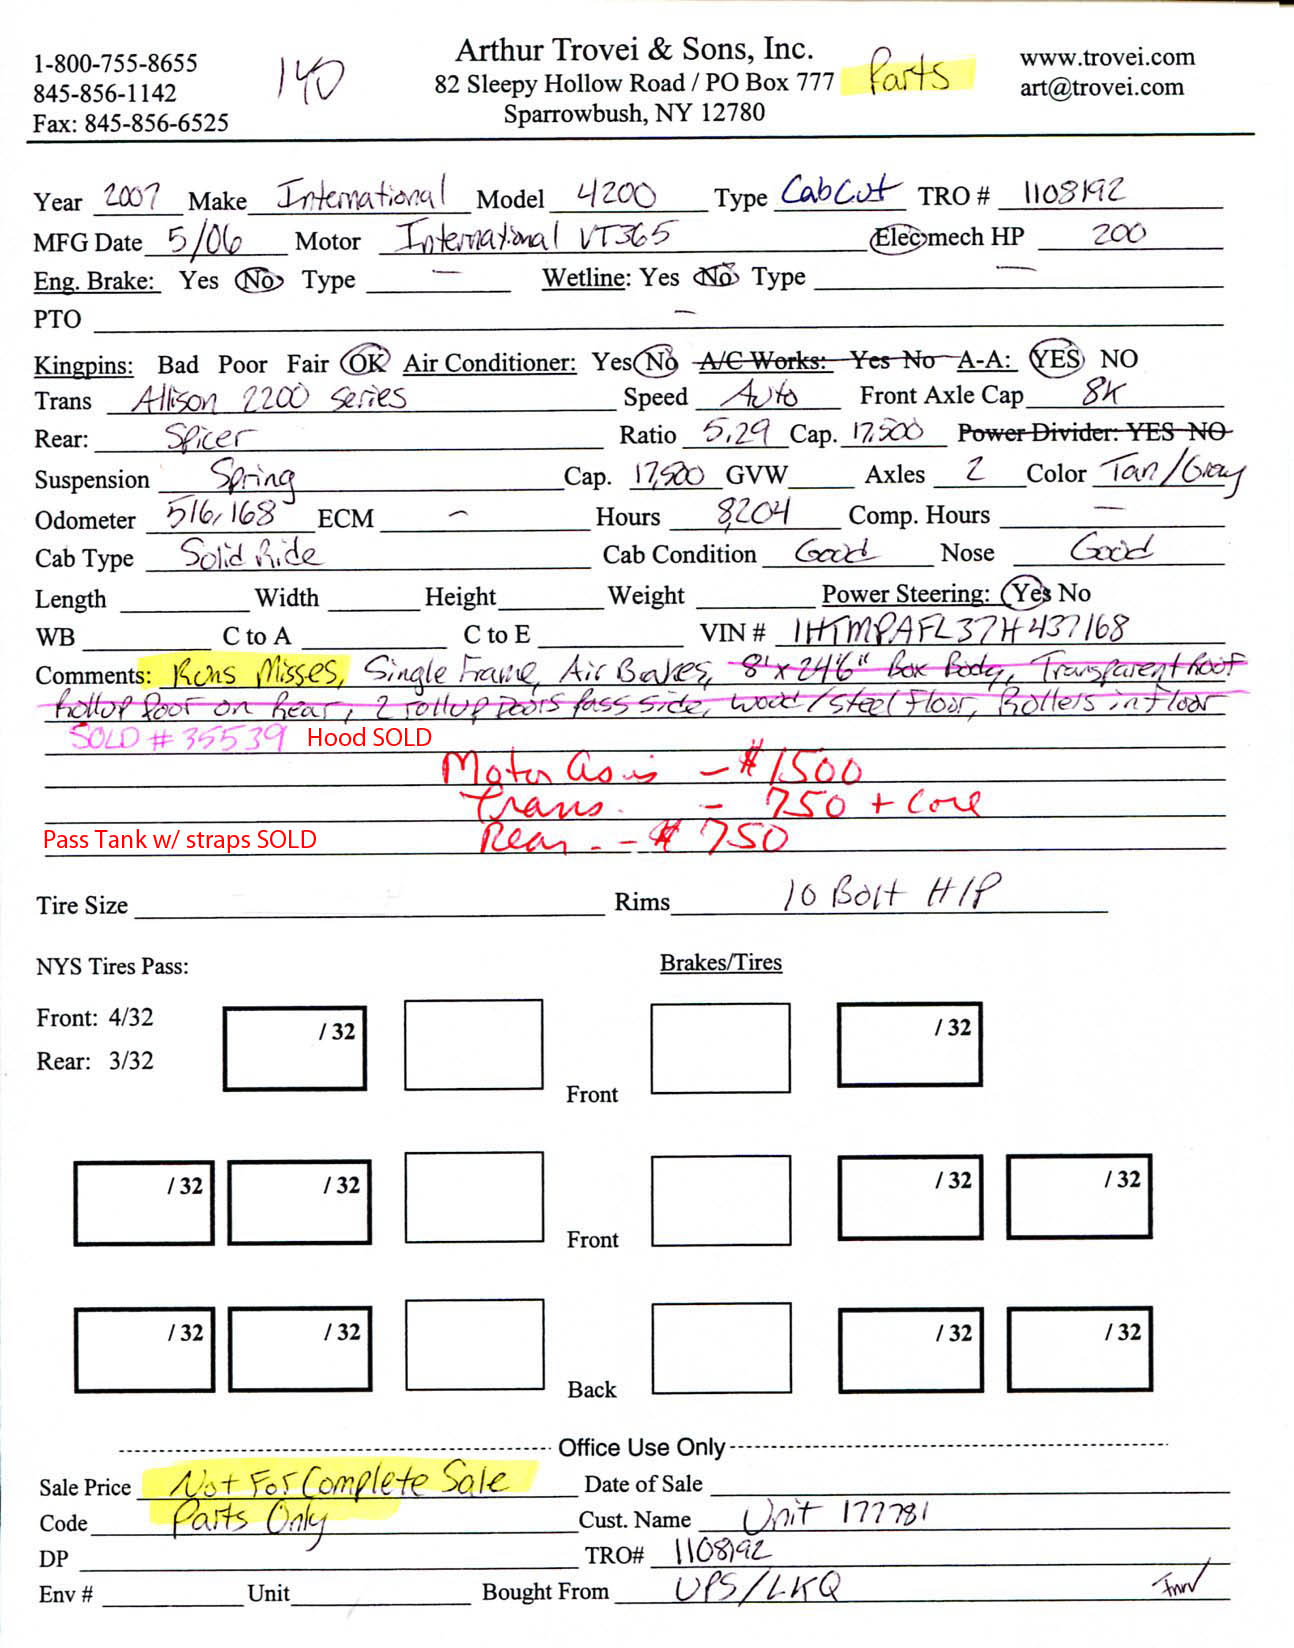 1-800-755-8655
845-856-1142
Fax: 845-856-6525
140
Arthur Trovei & Sons, Inc.
82 Sleepy Hollow Road / PO Box 777
Sparrowbush, NY 12780
Parts
www.trovei.com
art@trovei.com
Year 2007 Make International Model 4200 Type Cab Cut TRO # 1108192
MFG Date 5/06 Motor International VT365 Elec mech HP 200
Eng. Brake: Yes No Type — Wetline: Yes No Type —
PTO —
Kingpins: Bad Poor Fair OK Air Conditioner: Yes No A/C Works: Yes No A-A: YES NO
Trans Allison 2200 Series Speed Auto Front Axle Cap 8K
Rear: Spicer Ratio 5.29 Cap. 17,500 Power Divider: YES NO
Suspension Spring Cap. 17,500 GVW Axles 2 Color Tan/Gray
Odometer 516,168 ECM — Hours 8,204 Comp. Hours —
Cab Type Solid Ride Cab Condition Good Nose Good
Length Width Height Weight Power Steering: Yes No
WB C to A C to E VIN # 1HTMPAFL37H437168
Comments: Runs Misses, Single Frame, Air Brakes, 8' x 24'6" Box Body, Transparent Roof
Rollup Door on Rear, 2 rollup Doors Pass side, wood/steel Floor, Rollers in Floor
SOLD # 35539 Hood SOLD
Motor As is – $1500
Trans. – 750 + Core
Pass Tank w/ straps SOLD Rear – $750
Tire Size Rims 10 Bolt H/P
NYS Tires Pass: Brakes/Tires
Front: 4/32
Rear: 3/32
/ 32 / 32
Front
/ 32 / 32 / 32 / 32
Front
/ 32 / 32 / 32 / 32
Back
Office Use Only
Sale Price Not For Complete Sale Date of Sale
Code Parts Only Cust. Name Unit 177781
DP TRO# 1108192
Env # Unit Bought From UPS/LKQ